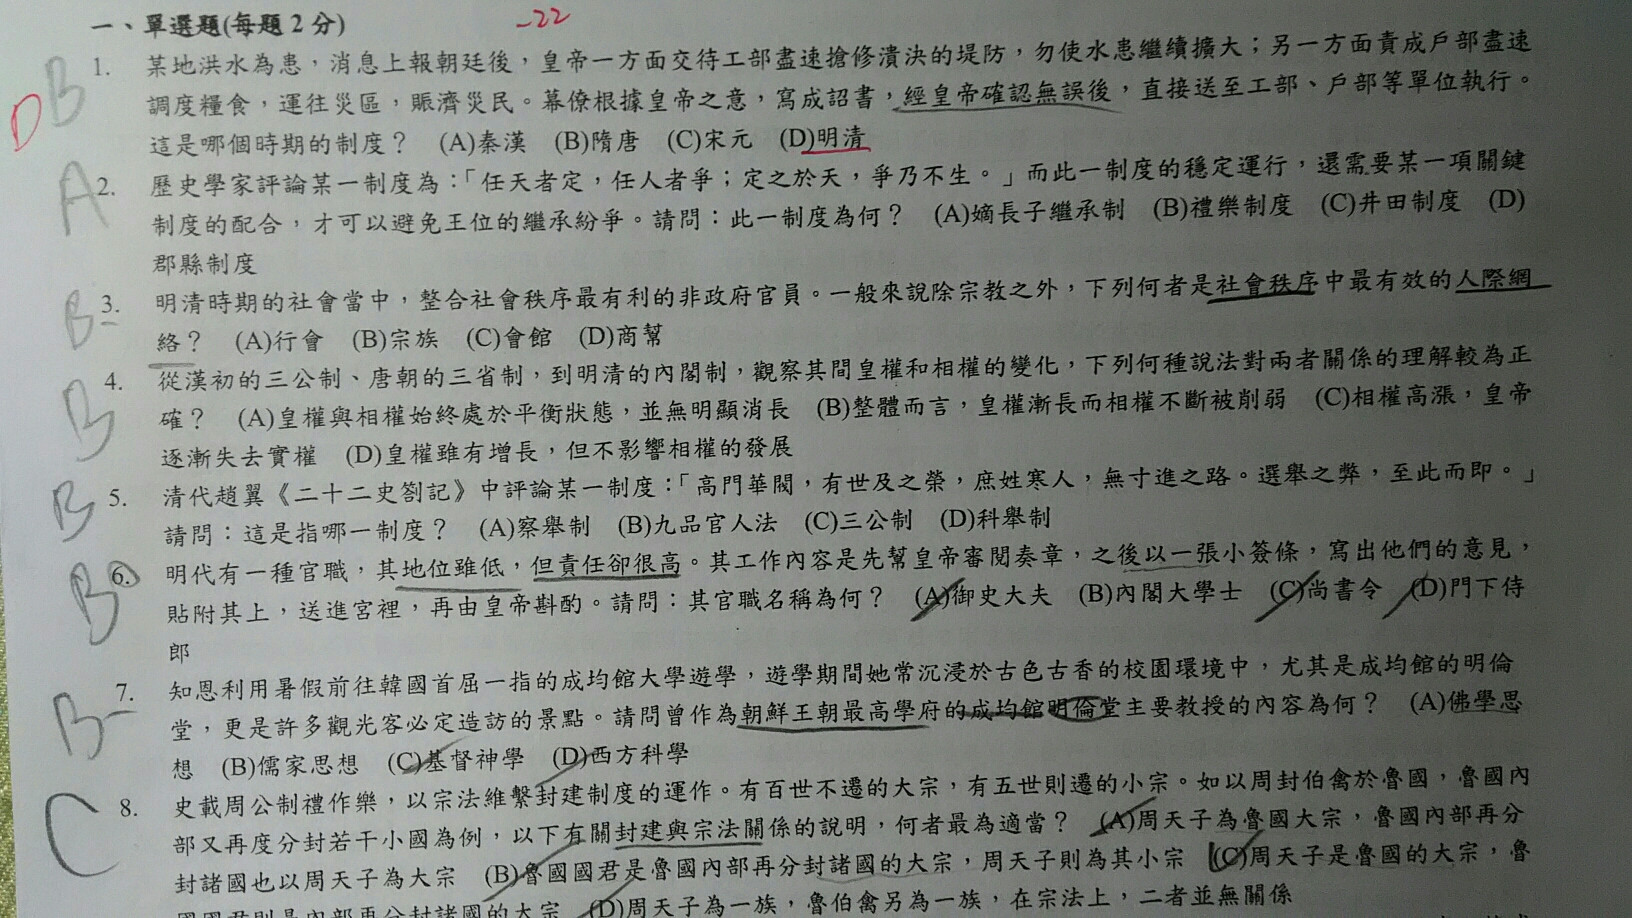 一、單選題(每題2分)
-22
B 1. 某地洪水為患，消息上報朝廷後，皇帝一方面交待工部盡速搶修潰決的堤防，勿使水患繼續擴大；另一方面責成戶部盡速
D 調度糧食，運往災區，賑濟災民。幕僚根據皇帝之意，寫成詔書，經皇帝確認無誤後，直接送至工部、戶部等單位執行。
這是哪個時期的制度？ (A)秦漢 (B)隋唐 (C)宋元 (D)明清
A 2. 歷史學家評論某一制度為：「任天者定，任人者爭；定之於天，爭乃不生。」而此一制度的穩定運行，還需要某一項關鍵
制度的配合，才可以避免王位的繼承紛爭。請問：此一制度為何？ (A)嫡長子繼承制 (B)禮樂制度 (C)井田制度 (D)
郡縣制度
B 3. 明清時期的社會當中，整合社會秩序最有利的非政府官員。一般來說除宗教之外，下列何者是社會秩序中最有效的人際網
絡？ (A)行會 (B)宗族 (C)會館 (D)商幫
B 4. 從漢初的三公制、唐朝的三省制，到明清的內閣制，觀察其間皇權和相權的變化，下列何種說法對兩者關係的理解較為正
確？ (A)皇權與相權始終處於平衡狀態，並無明顯消長 (B)整體而言，皇權漸長而相權不斷被削弱 (C)相權高漲，皇帝
逐漸失去實權 (D)皇權雖有增長，但不影響相權的發展
B 5. 清代趙翼《二十二史劄記》中評論某一制度：「高門華閥，有世及之榮，庶姓寒人，無寸進之路。選舉之弊，至此而即。」
請問：這是指哪一制度？ (A)察舉制 (B)九品官人法 (C)三公制 (D)科舉制
B 6. 明代有一種官職，其地位雖低，但責任卻很高。其工作內容是先幫皇帝審閱奏章，之後以一張小簽條，寫出他們的意見，
貼附其上，送進宮裡，再由皇帝斟酌。請問：其官職名稱為何？ (A)御史大夫 (B)內閣大學士 (C)尚書令 (D)門下侍
郎
B 7. 知恩利用暑假前往韓國首屈一指的成均館大學遊學，遊學期間她常沉浸於古色古香的校園環境中，尤其是成均館的明倫
堂，更是許多觀光客必定造訪的景點。請問曾作為朝鮮王朝最高學府的成均館明倫堂主要教授的內容為何？ (A)佛學思
想 (B)儒家思想 (C)基督神學 (D)西方科學
C 8. 史載周公制禮作樂，以宗法維繫封建制度的運作。有百世不遷的大宗，有五世則遷的小宗。如以周封伯禽於魯國，魯國內
部又再度分封若干小國為例，以下有關封建與宗法關係的說明，何者最為適當？ (A)周天子為魯國大宗，魯國內部再分
封諸國也以周天子為大宗 (B)魯國國君是魯國內部再分封諸國的大宗，周天子則為其小宗 (C)周天子是魯國的大宗，魯
國國君則是內部再分封諸國的大宗 (D)周天子為一族，魯伯禽另為一族，在宗法上，二者並無關係